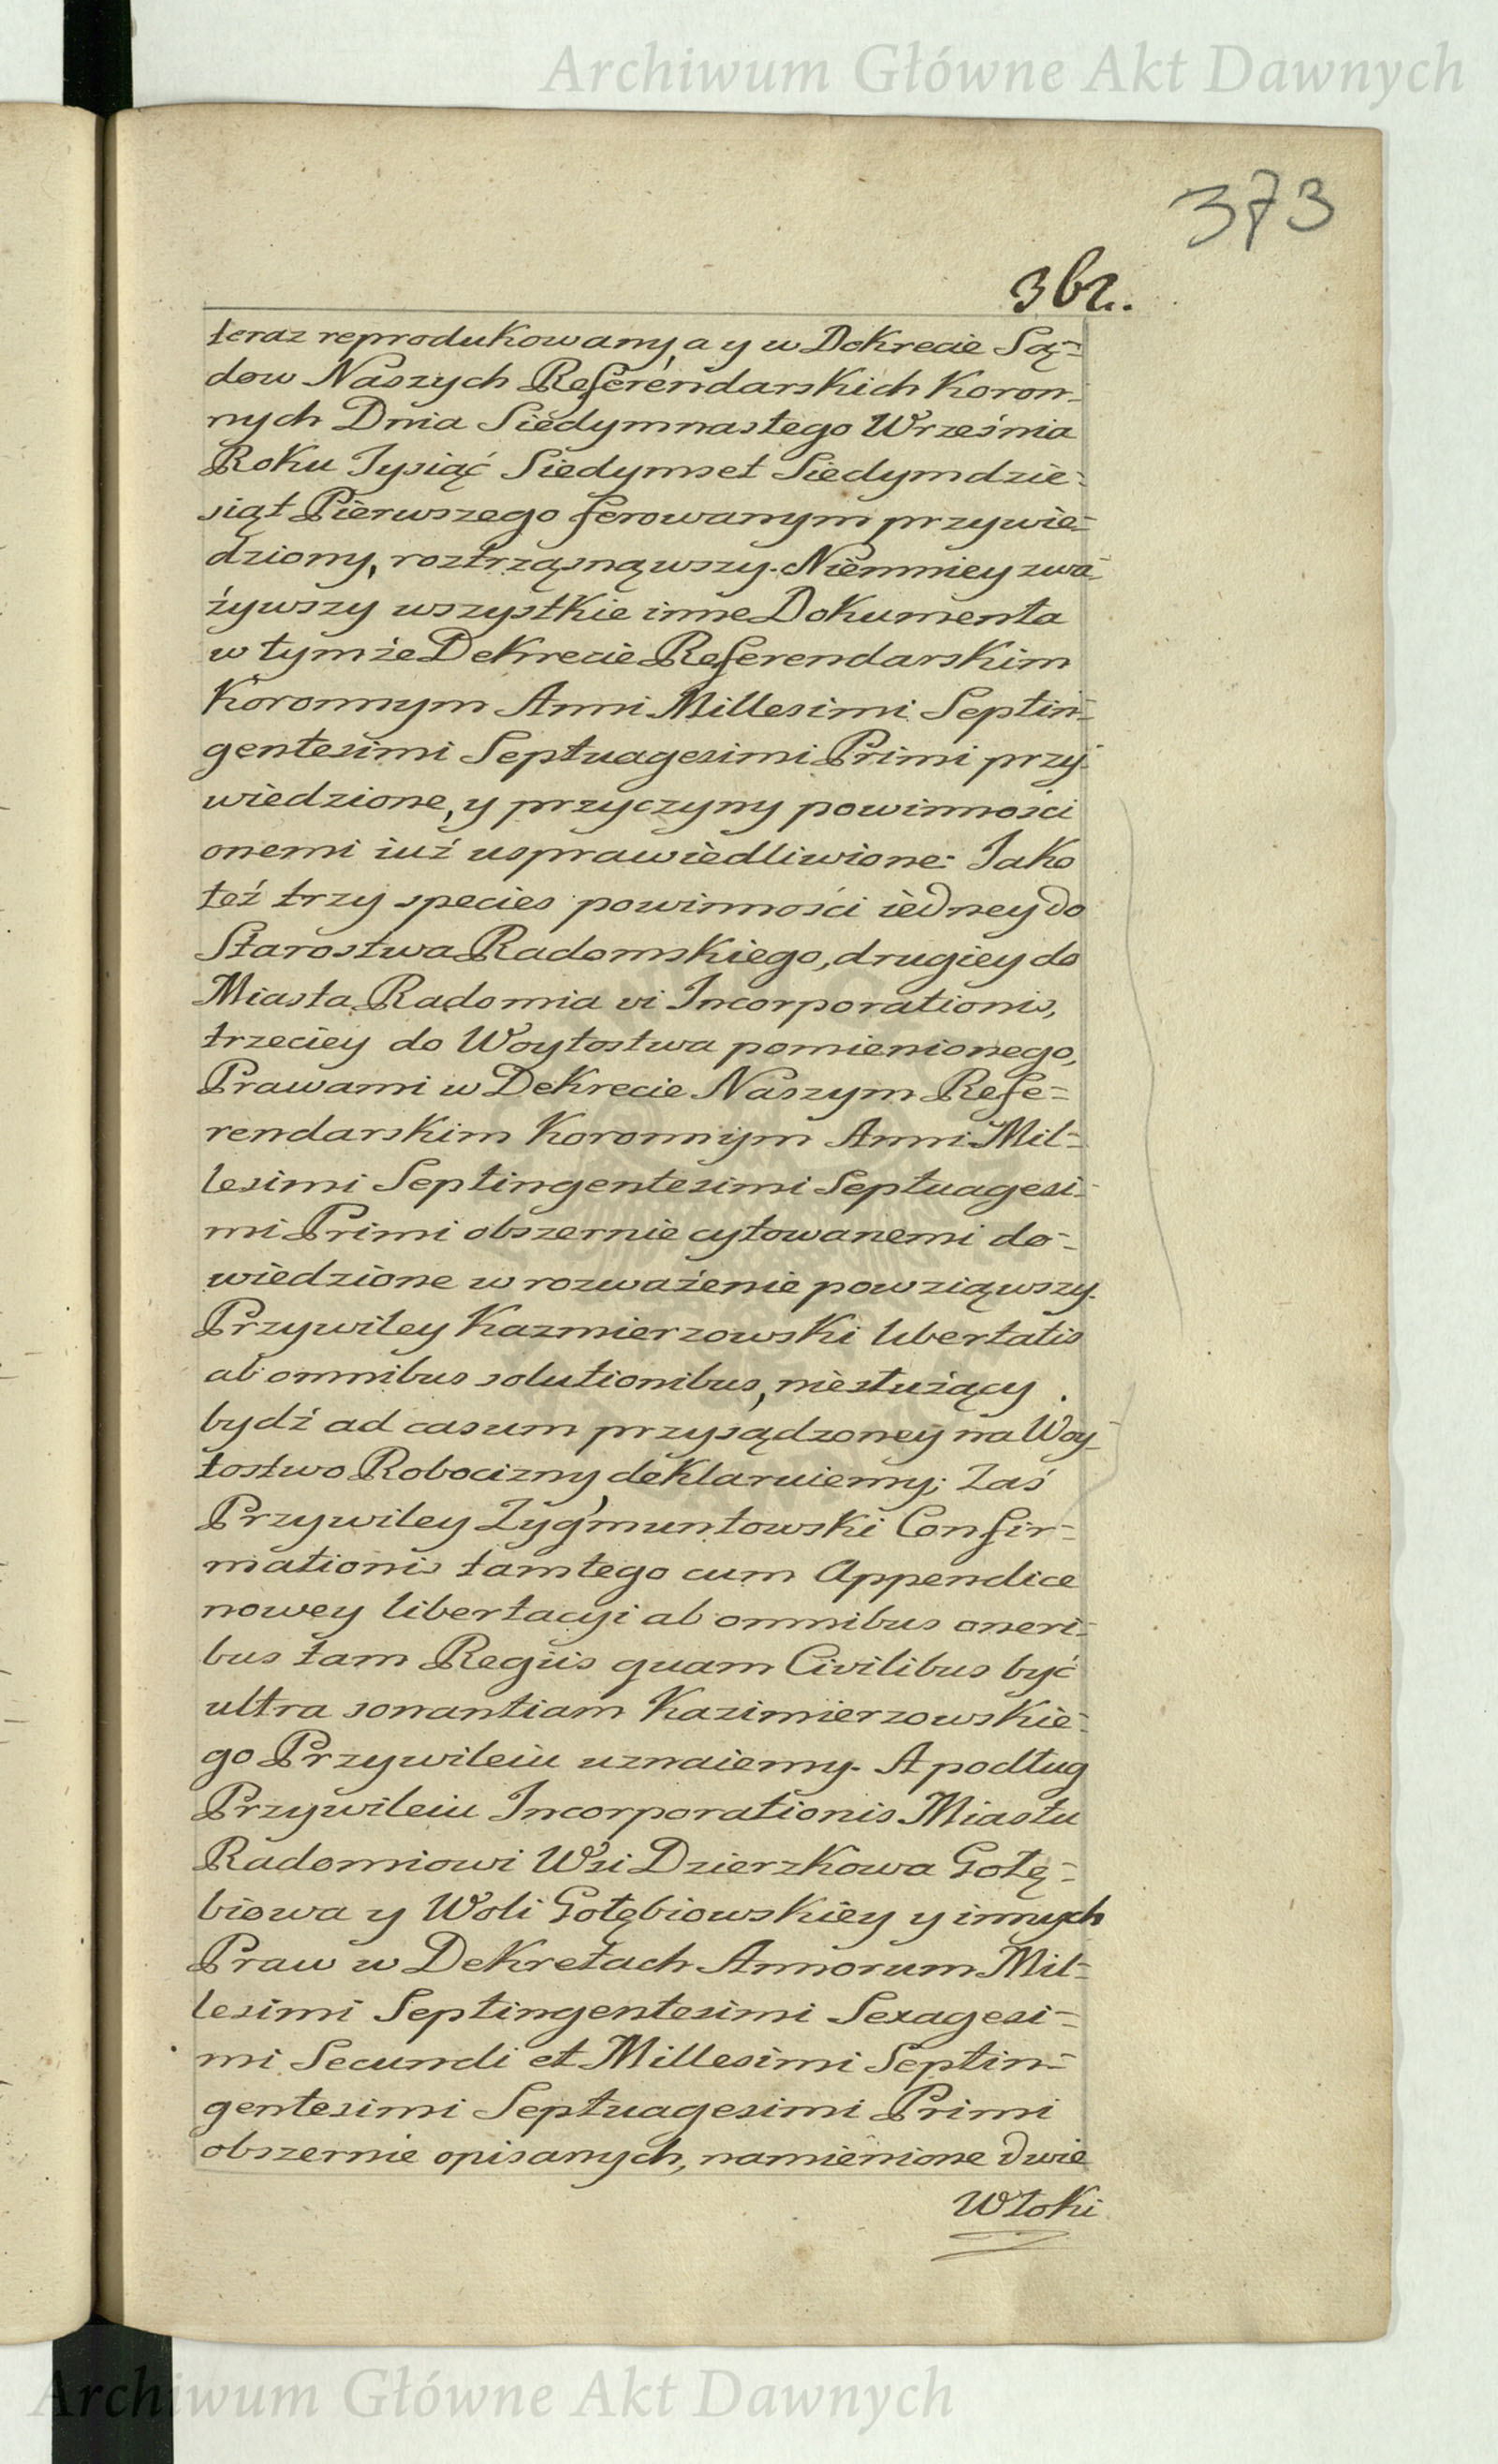 Archiwum Główne Akt Dawnych
373
362.
teraz reprodukowany, a y w Dekrecie Są=
dow Naszych Referendarskich Koron=
nych Dnia Siedymnastego Września
Roku Tysiąć Siedymset Siedymdzie=
siąt Pierwszego ferowanym przywie=
dziony, roztrząsnąwszy. Niemniey zwa=
żywszy wszystkie inne Dokumenta
w tymże Dekrecie Referendarskim
Koronnym Anni Millesimi Septin=
gentesimi Septuagesimi Primi przy=
wiedzione, y przyczyny powinności
onemi iuż usprawiedliwione: Jako
też trzy species powinności iedney do
Starostwa Radomskiego, drugiey do
Miasta Radomia vi Incorporationis,
trzeciey do Woytostwa pomienionego,
Prawami w Dekrecie Naszym Refe=
rendarskim Koronnym Anni Mil=
lesimi Septingentesimi Septuagesi=
mi Primi obszernie cytowanemi do=
wiedzione w rozważenie powziąwszy.
Przywiley Kazmierzowski libertatis
ab omnibus solutionibus, niesłużący
bydź ad casum przysądzoney na Woy=
tostwo Robocizny, deklaruiemy; Zaś
Przywiley Zygmuntowski Confir=
mationis tamtego cum Appendice
nowey libertacyi ab omnibus oneri=
bus tam Regiis quam Civilibus być
ultra sonantiam Kazimierzowskie=
go Przywileiu uznaiemy. A podług
Przywileiu Incorporationis Miastu
Radomiowi Wsi Dzierzkowa Gołę=
biowa y Woli Gołębiowskiey y innych
Praw w Dekretach Annorum Mil=
lesimi Septingentesimi Sexagesi=
mi Secundi et Millesimi Septin=
gentesimi Septuagesimi Primi
obszernie opisanych, namienione dwie
Włoki
Archiwum Główne Akt Dawnych